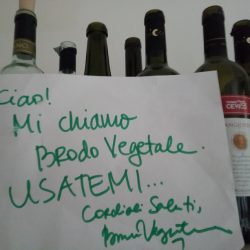 Ciao!
Mi chiamo
BRODO VEGETALE.
USATEMI...
Cordiali Saluti,